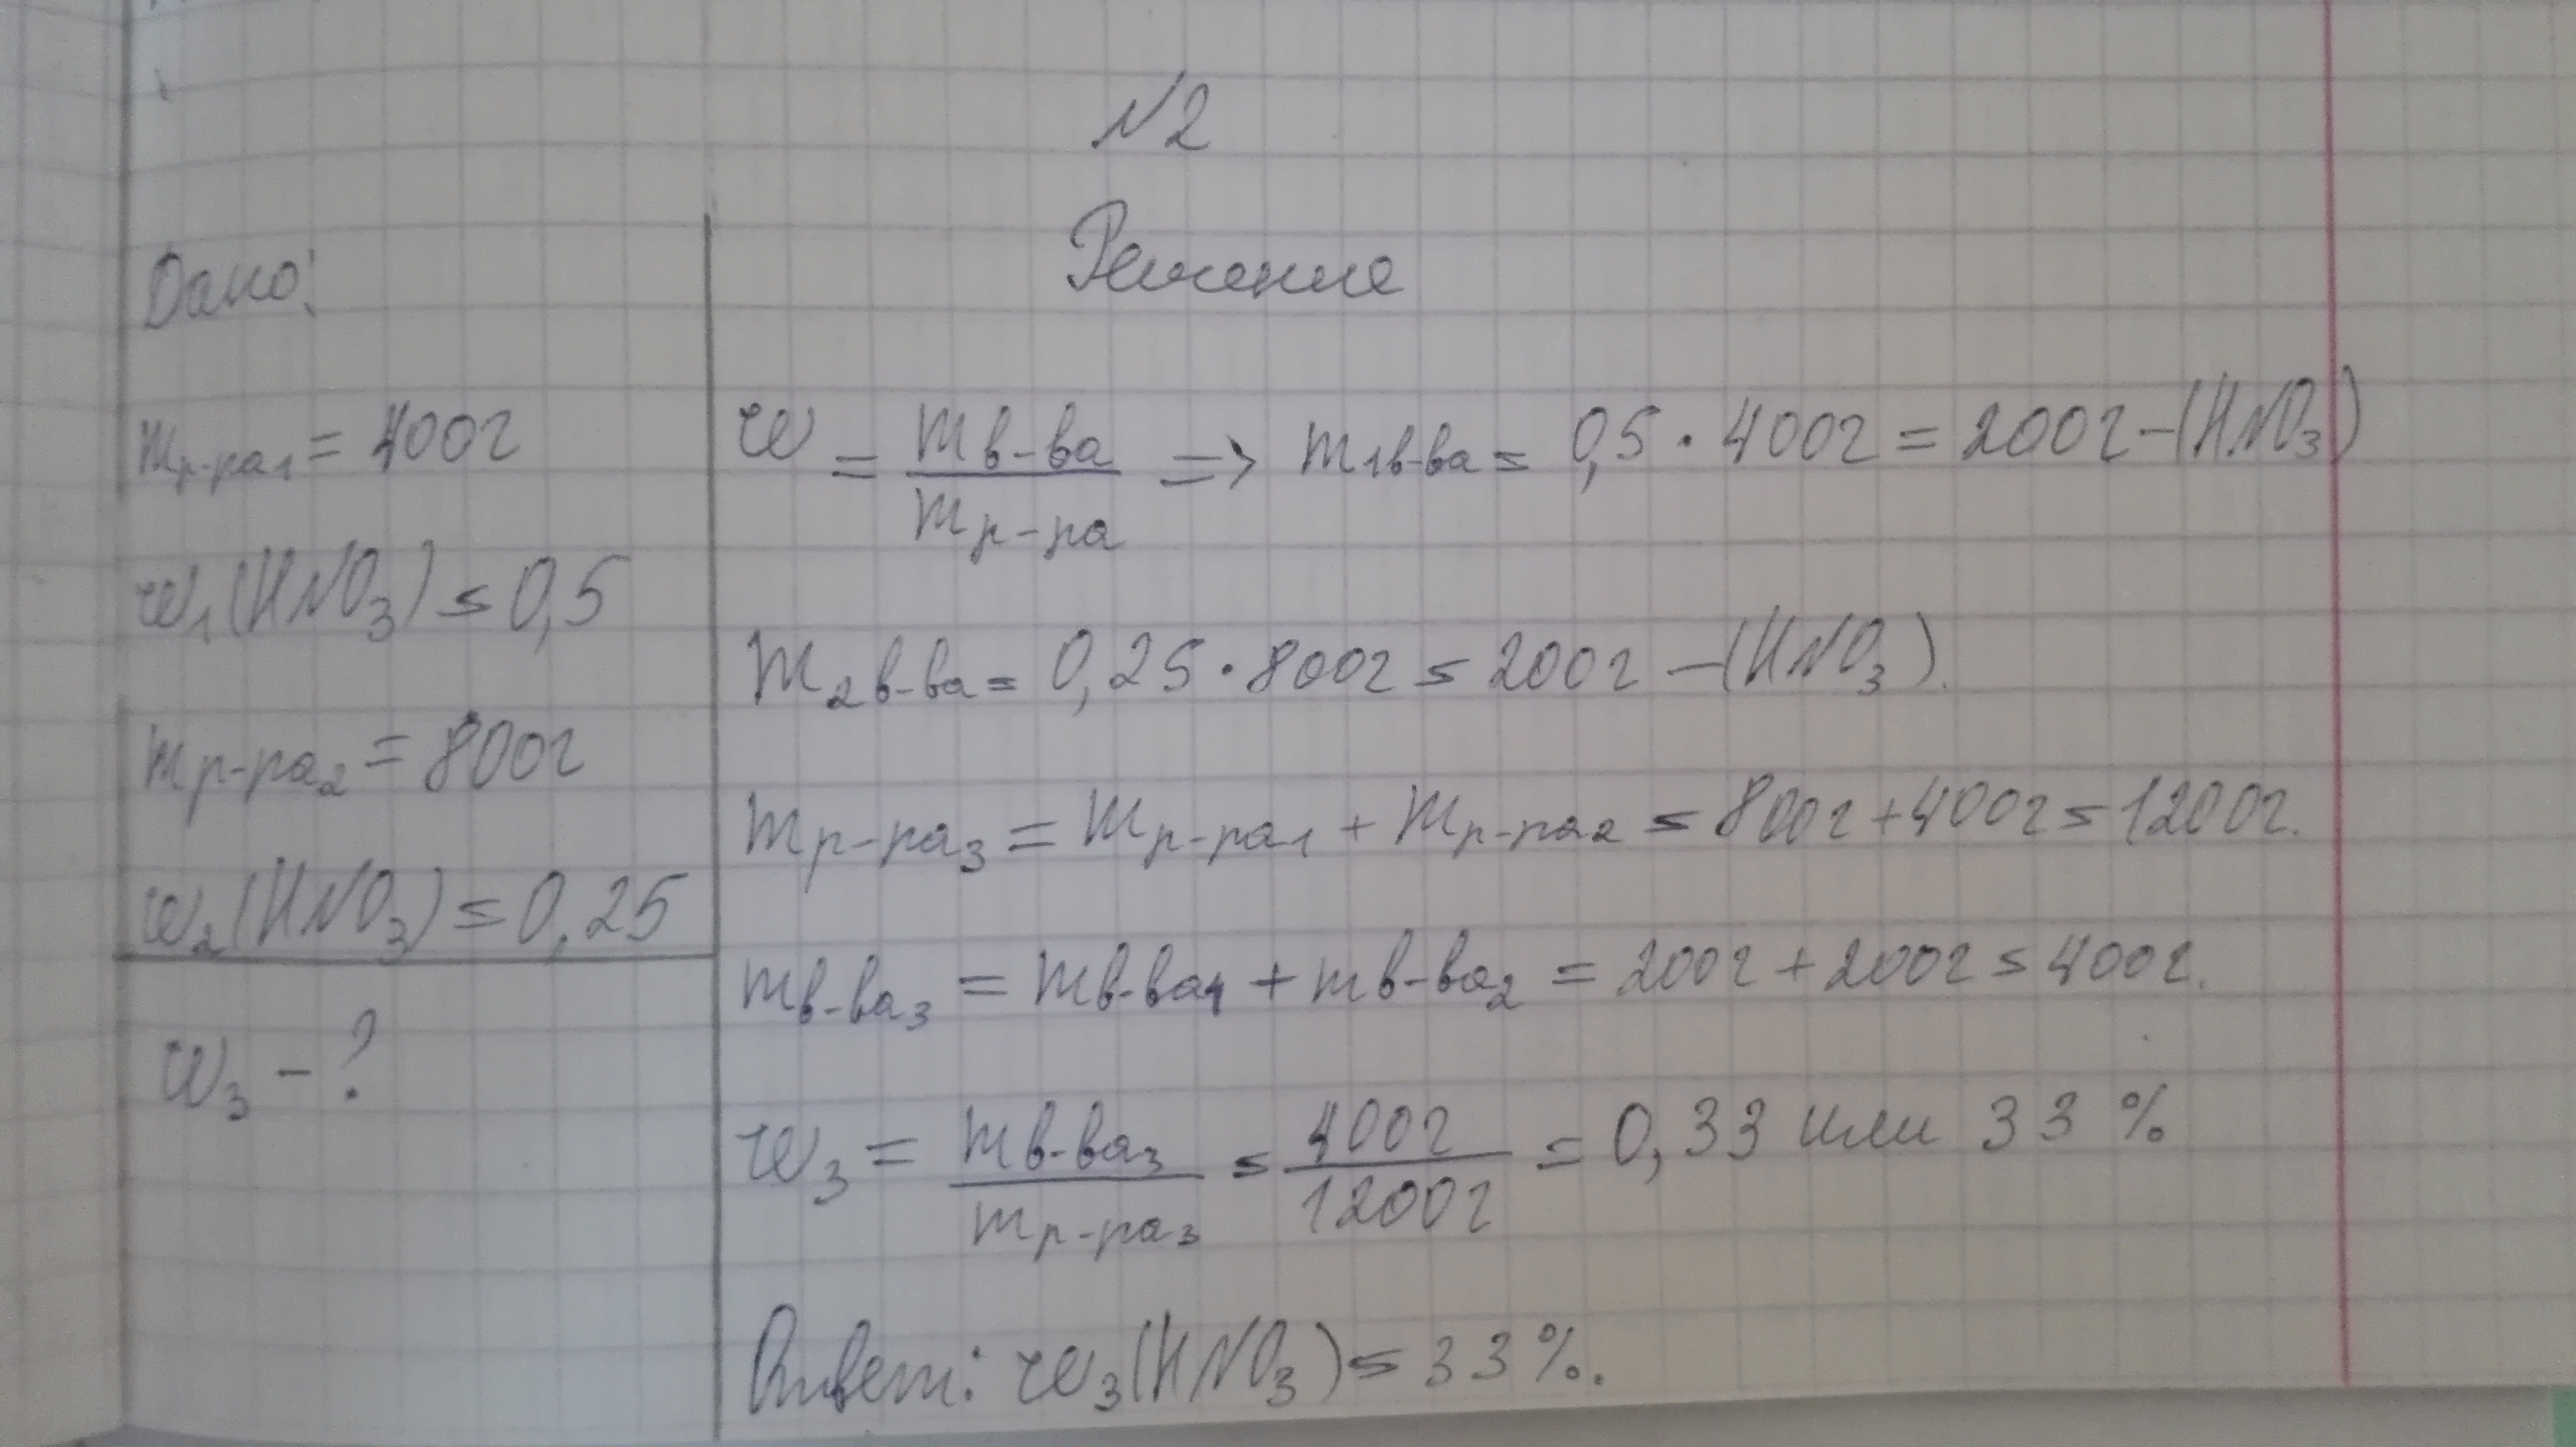 №2
Дано:
m р-ра1 = 400г
w1(HNO3) = 0,5
m р-ра2 = 800г
w2(HNO3) = 0,25
w3 - ?
Решение
w = m в-ва / m р-ра => m1в-ва = 0,5 · 400г = 200г - (HNO3)
m2в-ва = 0,25 · 800г = 200г - (HNO3).
m р-ра3 = m р-ра1 + m р-ра2 = 800г + 400г = 1200г.
m в-ва3 = m в-ва1 + m в-ва2 = 200г + 200г = 400г.
w3 = m в-ва3 / m р-ра3 = 400г / 1200г = 0,33 или 33 %
Ответ: w3(HNO3) = 33%.